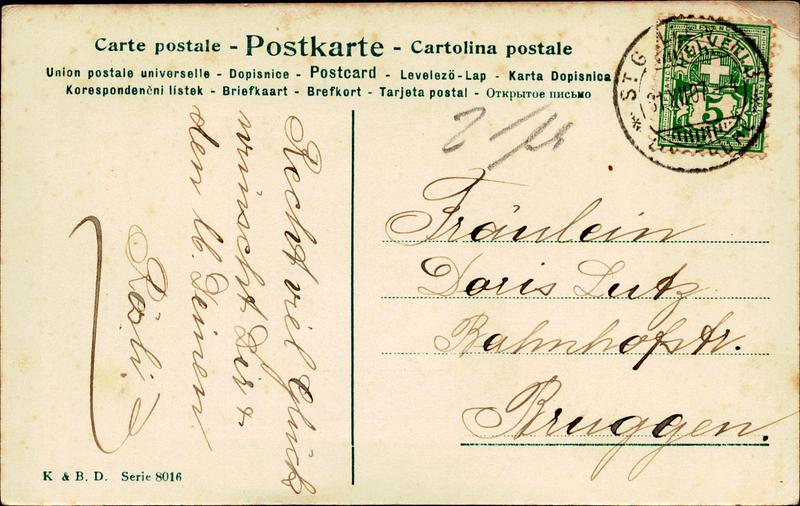 Carte postale - Postkarte - Cartolina postale
Union postale universelle - Dopisnice - Postcard - Levelező-Lap - Karta Dopisnica
Korespondenčni listek - Briefkaart - Brefkort - Tarjeta postal - Открытое письмо
HELVETIA
5
ST. G
Recht viel Glück
wünscht Dir &
den lb. Deinen
Rösli.
Fräulein
Doris Lutz
Bahnhofstr.
Bruggen.
K & B. D. Serie 8016